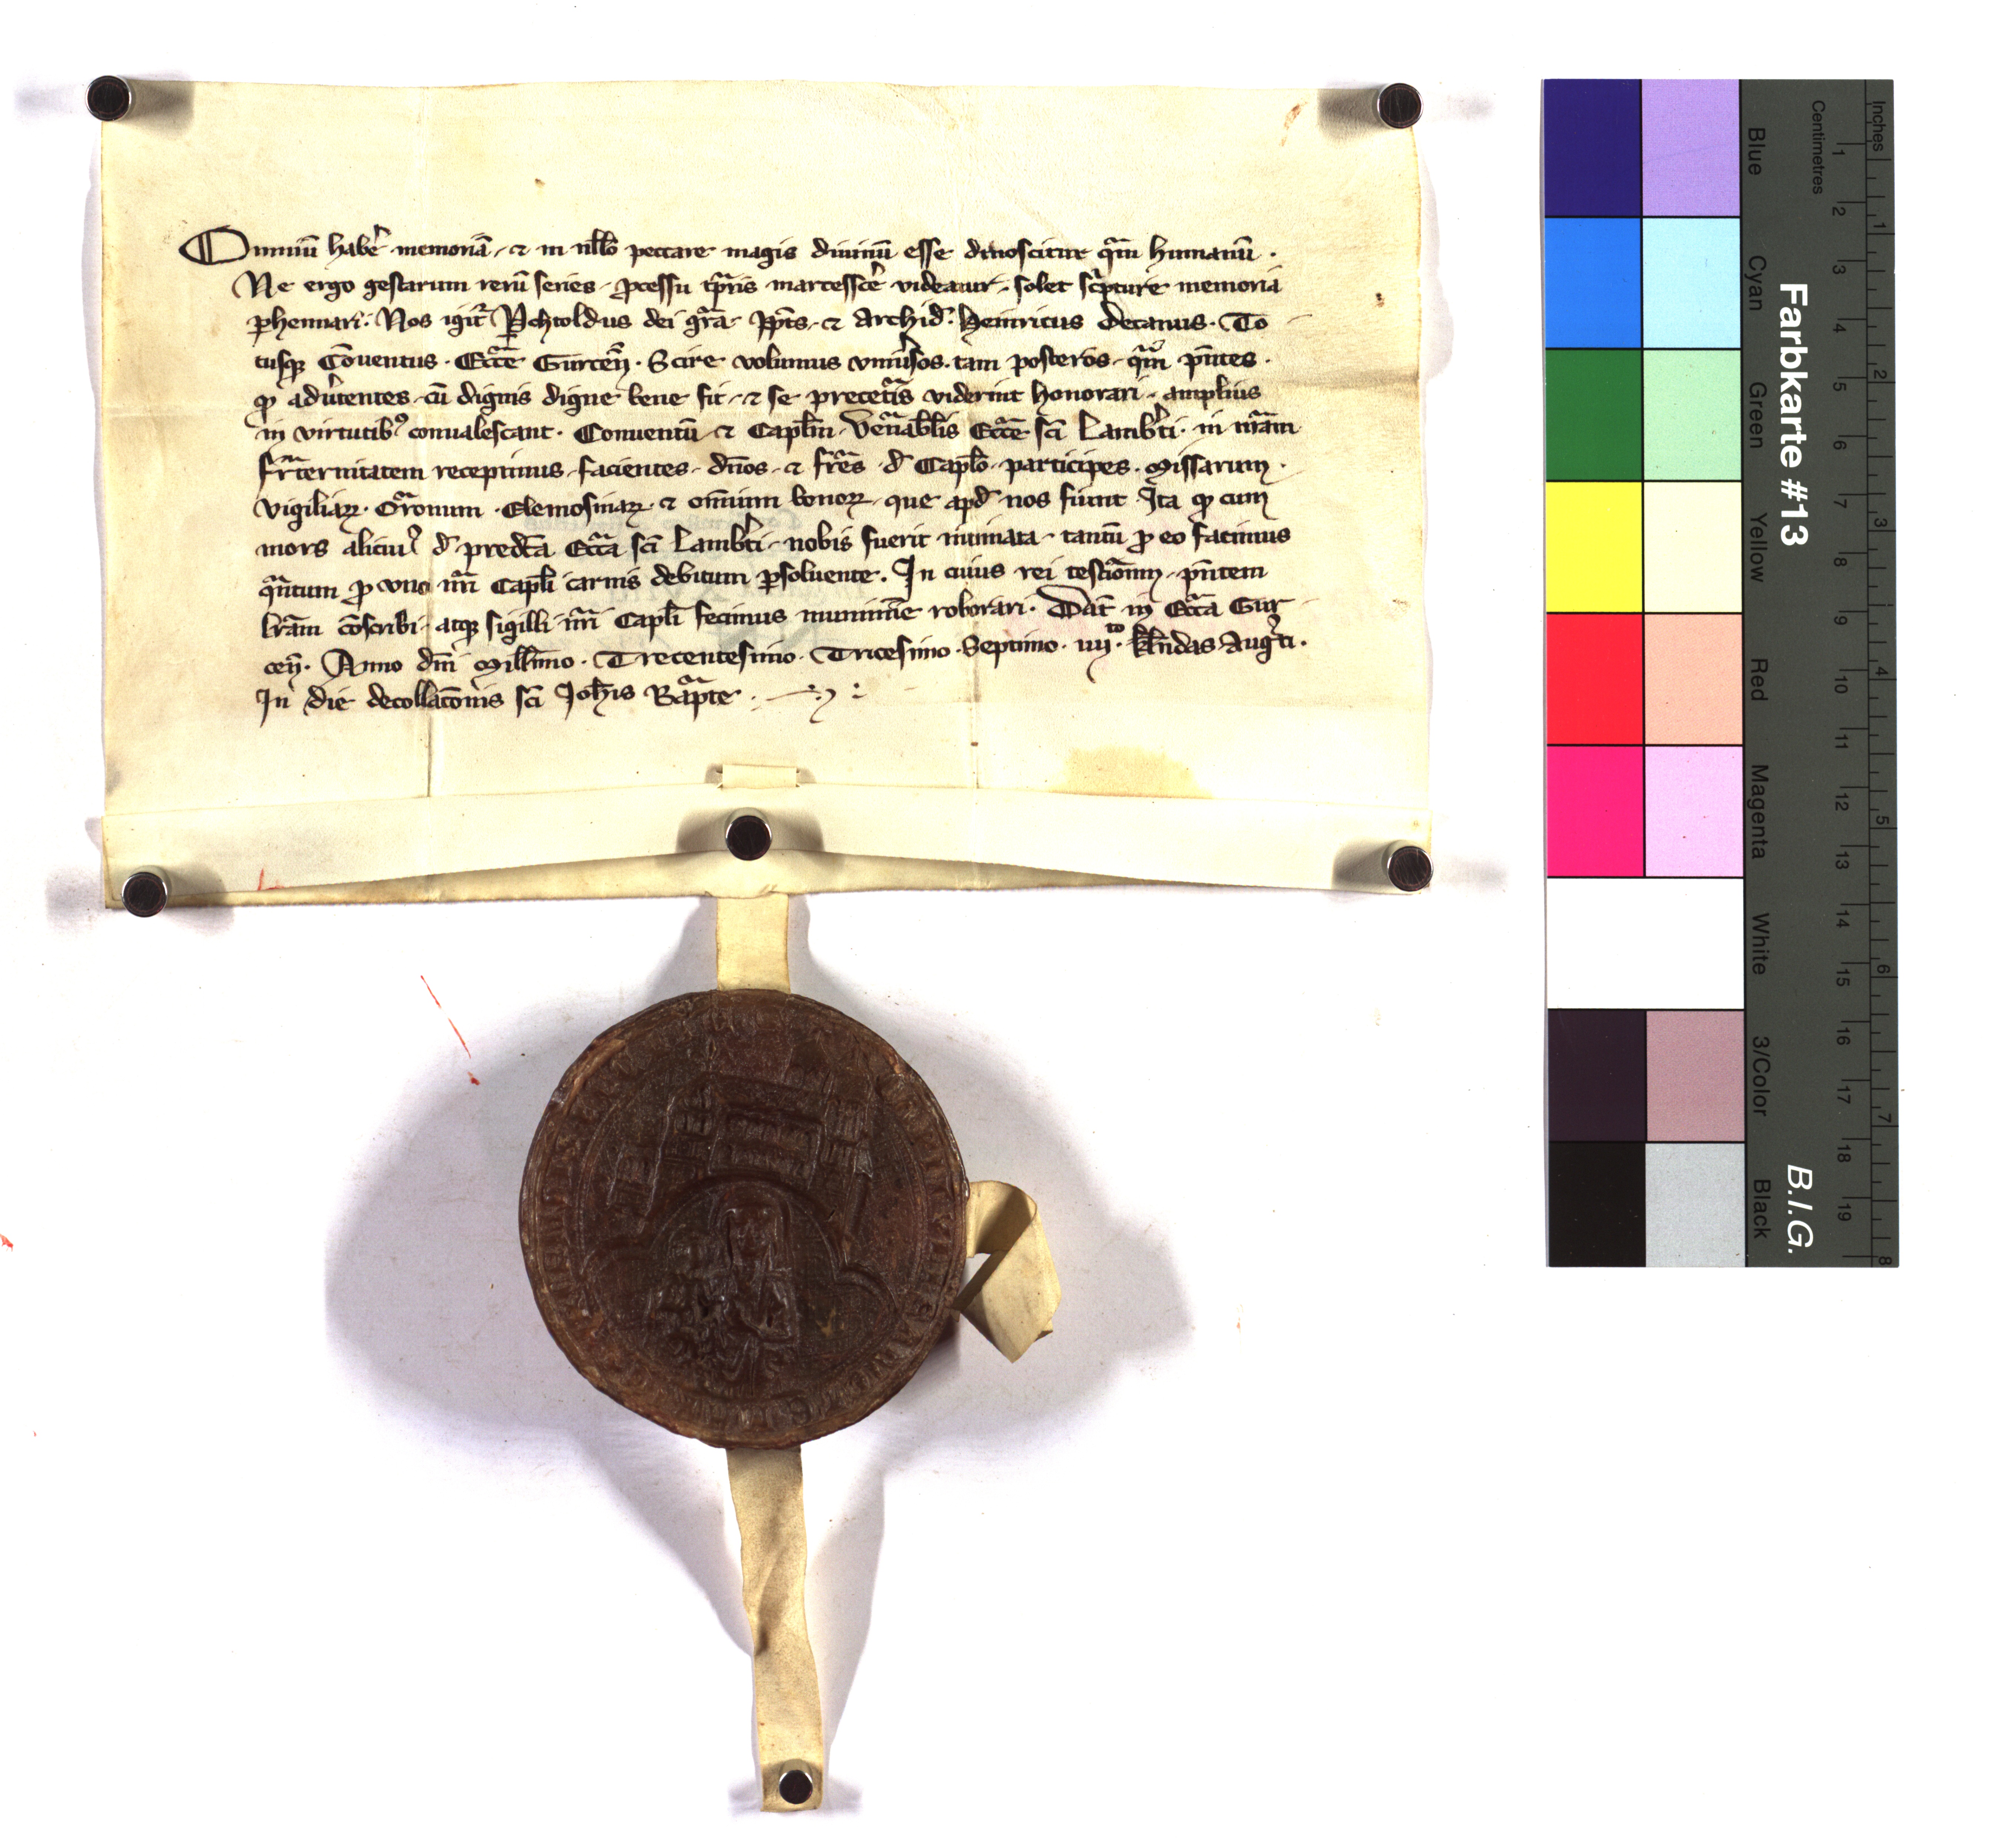 Omniū haber̄ memoriā, et in nllo̅ peccare magis diuinū esse dinoscitur qͣm humanū.
Ne ergo gestarum rerū series, ꝓcessu tp̄ris marcesscer̄ videatur, solet sc͛pture memoria
ꝑhennari. Nos igit͛ Perhtoldus dei gr̄a Pp̄ts, et Archid͛. Heinricus Decanus. To
tusqꝫ Cōuentus. Eccͣe Gurceñ. Scire volumus vniu͛sos. tam posteros, qͣm p̄ntes.
ꝙ adu͛tentes, cū dignis digne bene fit, et se pre cet͛is viderint honorari, amplius
in virtutibꝰ conualescant. Conuentū et Capl̄m venͣabl̄is Ecc̄e sc̄i Lamb͛ti. in nr̄am
fr̄aternitatem recepimus, facientes, dn̄os, et fr̄es d͛ Capl̄o, participes. Missarum.
vigiliaꝝ. Or̄onum. Elemosinaꝝ. et om̄nium bonoꝝ, que apd͛ nos fiunt. Ita ꝙ cum
mors alicuiꝰ d͛ predc̄a Ecc̄a sc̄i Lamb͛ti, nobis fuerit intimata, tantū ꝓ eo facimus
qͣntum ꝓ vno nr̄i Capl̄i carnis debitum ꝑsoluente. In cuius rei testīonm̄, p̄ntem
lr̄am cōscribi, atqꝫ sigilli nr̄i Capl̄i fecimus munimīe roborari. Dat̄ in Ecc̄a Gur
ceñ. Anno dn̄i Mill̄imo. Trecentesimo. Tricesimo. Septimo. iiijto. kl̄ndas Aug͛ti.
In die decollac̄onis sc̄i Joh̄is Bapͣte.
Farbkarte #13
B.I.G.
Inches
Centimetres
1 2 3 4 5 6 7 8
1 2 3 4 5 6 7 8 9 10 11 12 13 14 15 16 17 18 19
Blue
Cyan
Green
Yellow
Red
Magenta
White
3/Color
Black